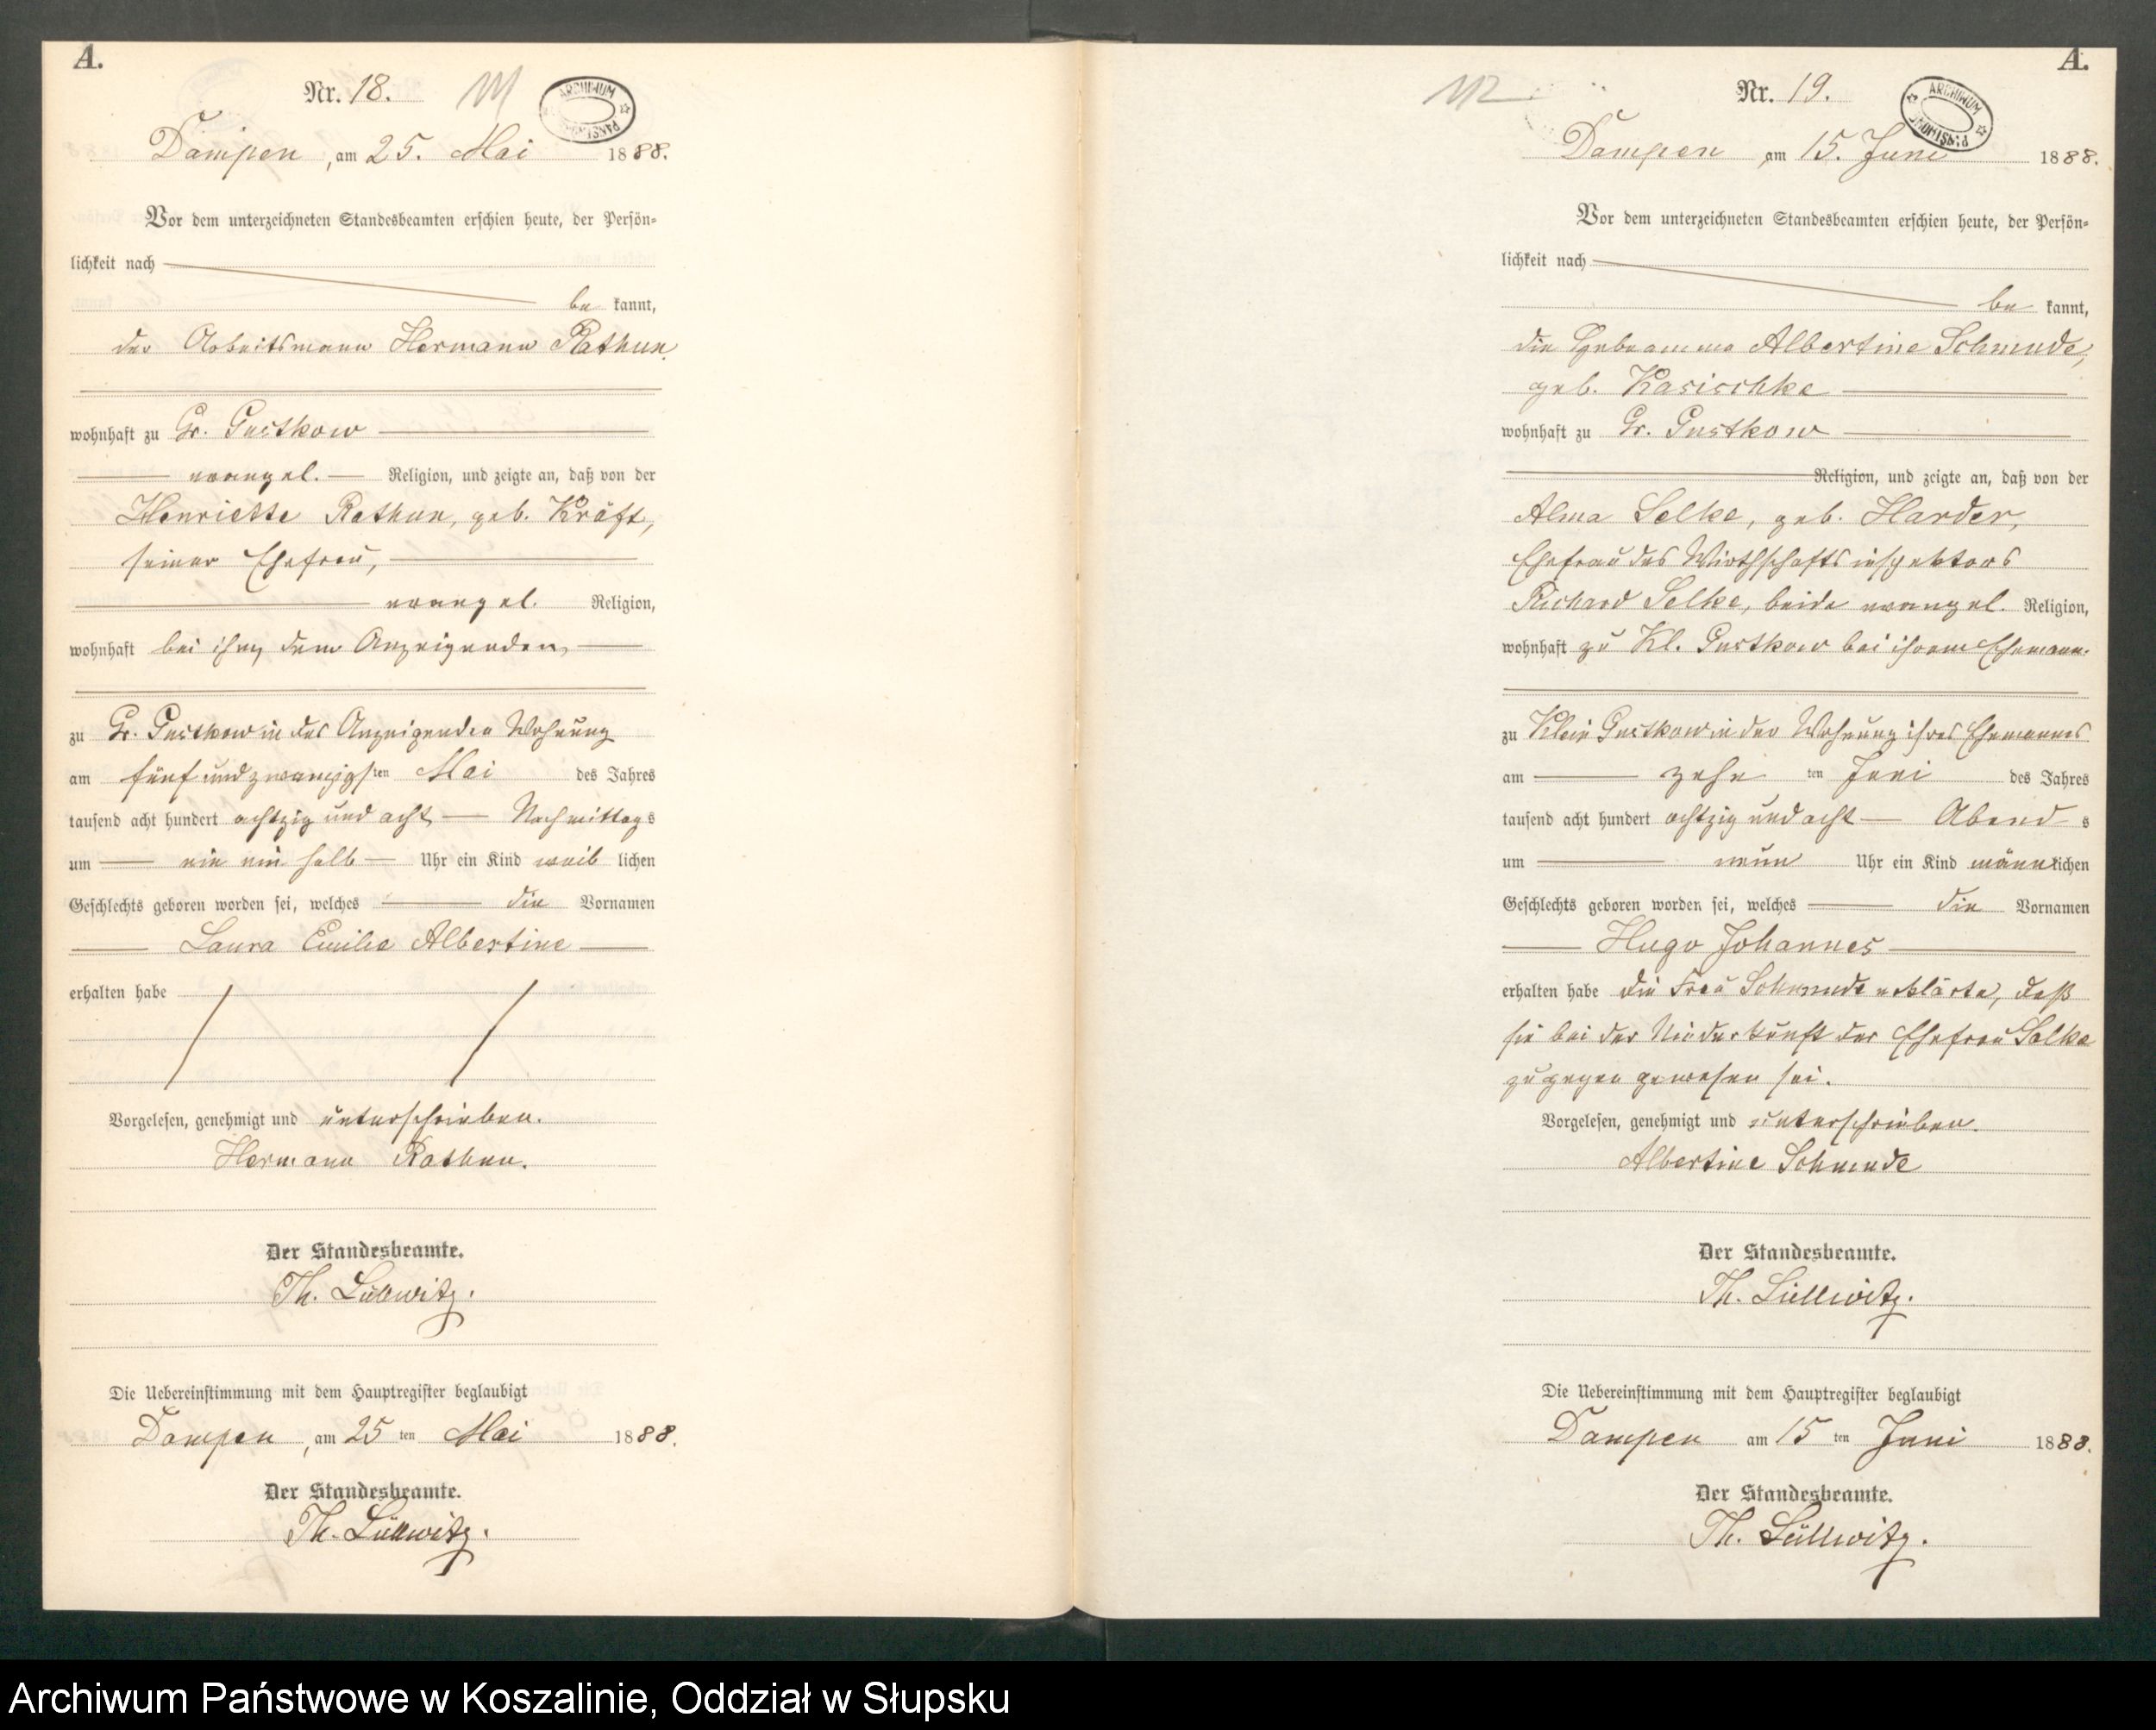 A.
Nr. 18.
111
ARCHIWUM PAŃSTWOWE
Dampen, am 25. Mai 1888.
Vor dem unterzeichneten Standesbeamten erschien heute, der Persön-
lichkeit nach
be kannt,
der Arbeitsmann Hermann Rathun
wohnhaft zu Gr. Gustkow
evangel. Religion, und zeigte an, daß von der
Henriette Rathun, geb. Kräft,
seiner Ehefrau,
evangel. Religion,
wohnhaft bei ihm, dem Anzeigenden,
zu Gr. Gustkow in des Anzeigenden Wohnung
am fünf und zwanzigsten Mai des Jahres
tausend acht hundert achtzig und acht Nachmittags
um ein ein halb Uhr ein Kind weib lichen
Geschlechts geboren worden sei, welches die Vornamen
Laura Emilie Albertine
erhalten habe
Vorgelesen, genehmigt und unterschrieben.
Hermann Rathun.
Der Standesbeamte.
Th. Lüllwitz.
Die Uebereinstimmung mit dem Hauptregister beglaubigt
Dampen, am 25 ten Mai 1888.
Der Standesbeamte.
Th. Lüllwitz.
A.
Nr. 19.
112
ARCHIWUM PAŃSTWOWE
Dampen am 15. Juni 1888.
Vor dem unterzeichneten Standesbeamten erschien heute, der Persön-
lichkeit nach
be kannt,
die Hebeamme Albertine Schmude,
geb. Kasischke
wohnhaft zu Gr. Gustkow
Religion, und zeigte an, daß von der
Alma Selke, geb. Harder,
Ehefrau des Wirthschaftsinspektors
Richard Selke, beide evangel. Religion,
wohnhaft zu Kl. Gustkow bei ihrem Ehemann.
zu Klein Gustkow in der Wohnung ihres Ehemannes
am zehn ten Juni des Jahres
tausend acht hundert achtzig und acht Abend s
um neun Uhr ein Kind männlichen
Geschlechts geboren worden sei, welches die Vornamen
Hugo Johannes
erhalten habe die Frau Schmude erklärte, daß
sie bei der Niederkunft der Ehefrau Selke
zugegen gewesen sei.
Vorgelesen, genehmigt und unterschrieben.
Albertine Schmude
Der Standesbeamte.
Th. Lüllwitz.
Die Uebereinstimmung mit dem Hauptregister beglaubigt
Dampen am 15 ten Juni 1888.
Der Standesbeamte.
Th. Lüllwitz.
Archiwum Państwowe w Koszalinie, Oddział w Słupsku